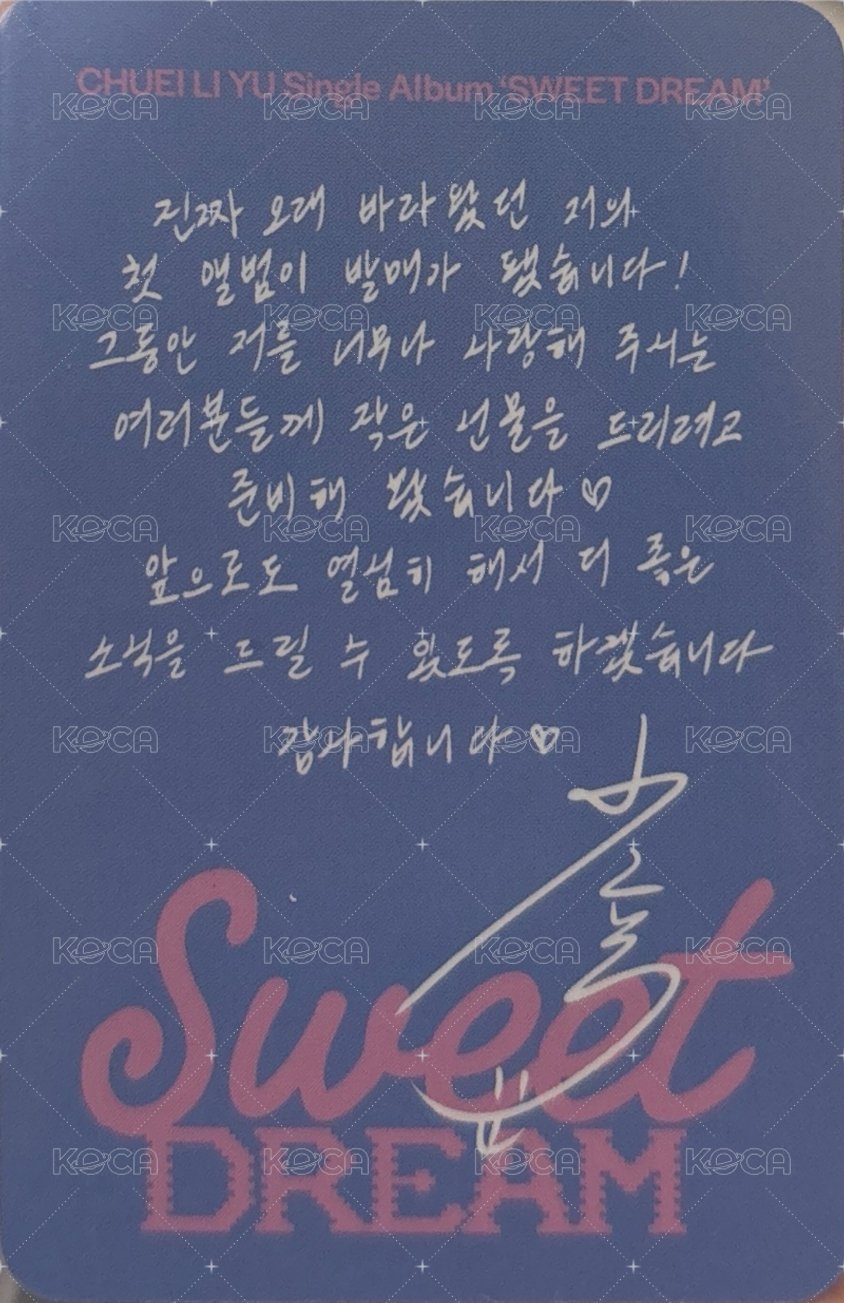 CHUEI LI YU Single Album 'SWEET DREAM'
진짜 오래 바라왔던 저의
첫 앨범이 발매가 됐습니다!
그동안 저를 너무나 사랑해 주시는
여러분들께 작은 선물을 드리려고
준비해 봤습니다♡
앞으로도 열심히 해서 더 좋은
소식을 드릴 수 있도록 하겠습니다
감사합니다♡
Sweet
DREAM
KOCA